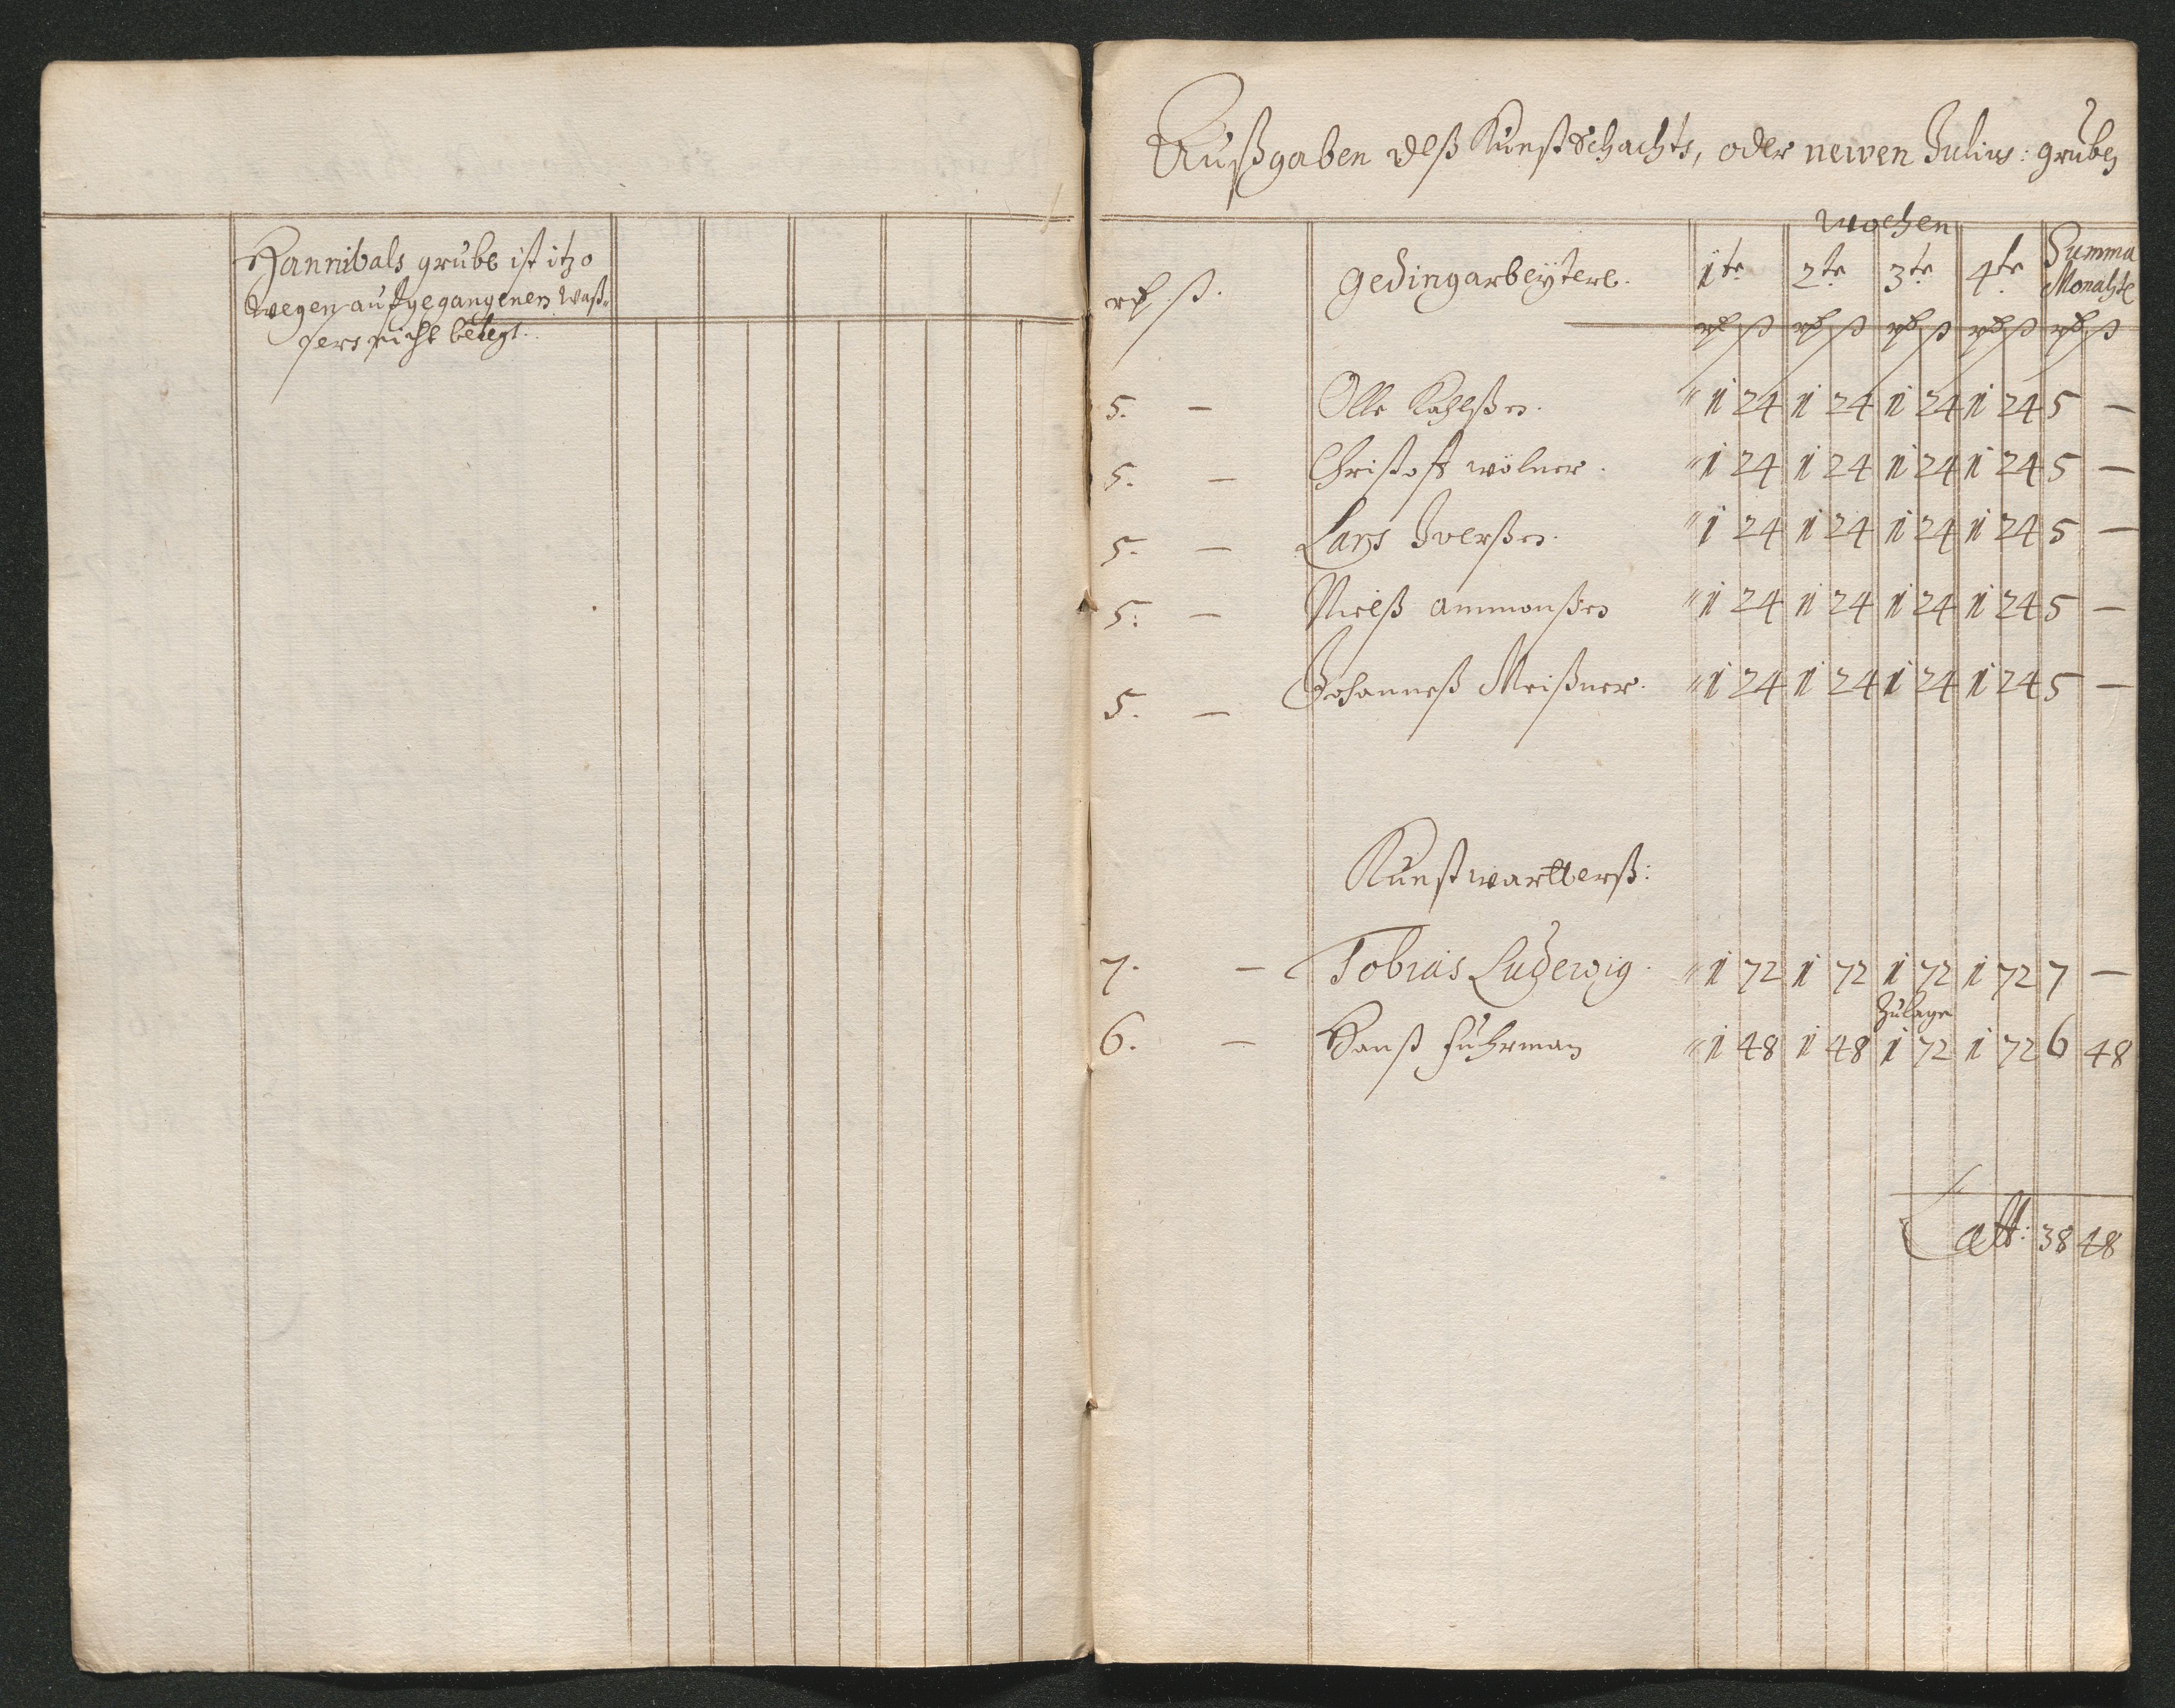 Hannibals grube ist itzo
wegen aufgegangenen waß„
sers nicht belegt.
Außgaben deß Kunst Schachts, oder newen Julius: gruben
wochen
rd. ß. gedingarbeÿtere. 1te 2te 3te 4te Summa Monahte
rd ß rd ß rd ß rd ß rd ß
5. — Olle Kahlßen. " 1 24 1 24 1 24 1 24 5 —
5. — Christoff wölner. " 1 24 1 24 1 24 1 24 5 —
5. — Lars Iverßen. " 1 24 1 24 1 24 1 24 5 —
5: — Nielß ammonßen " 1 24 1 24 1 24 1 24 5 —
5. — Johanneß Meißner. " 1 24 1 24 1 24 1 24 5 —
Kunstwartterß:
7. — Tobias Ludewig. " 1 72 1 72 1 72 1 72 7 —
Zulage
6. — Hanß fuhrman " 1 48 1 48 1 72 1 72 6 48
Latt: 38 48